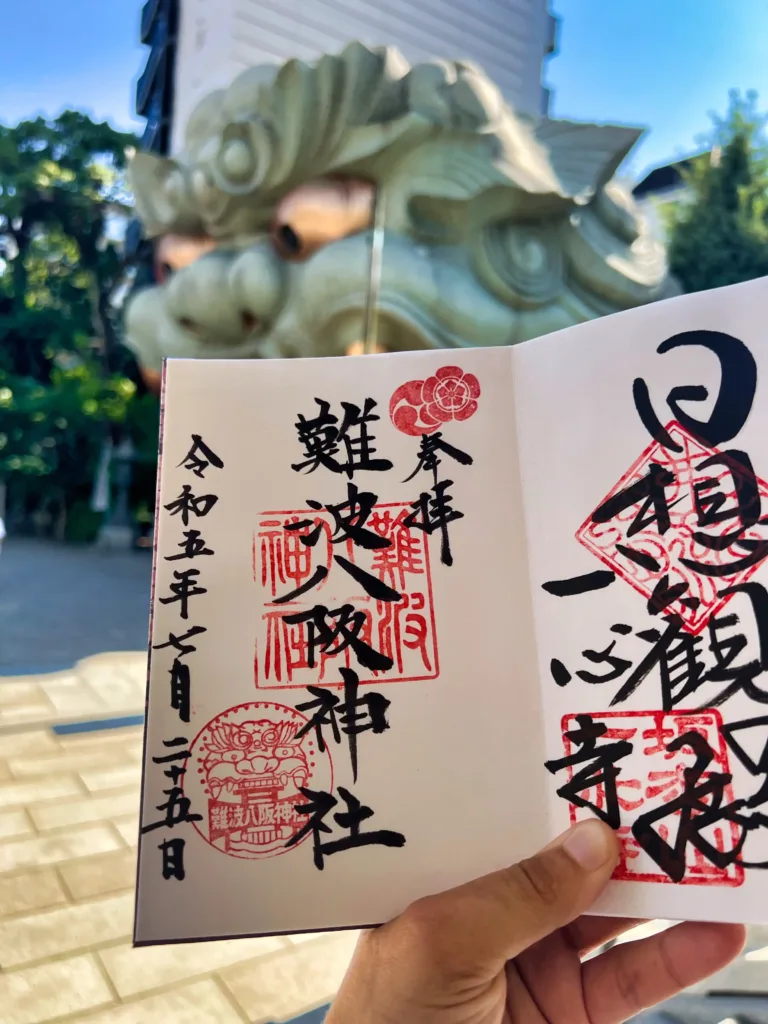 日想観
一心寺
奉拝
難波八阪神社
難波
八阪
神社
令和五年七月二十五日
難波八阪神社